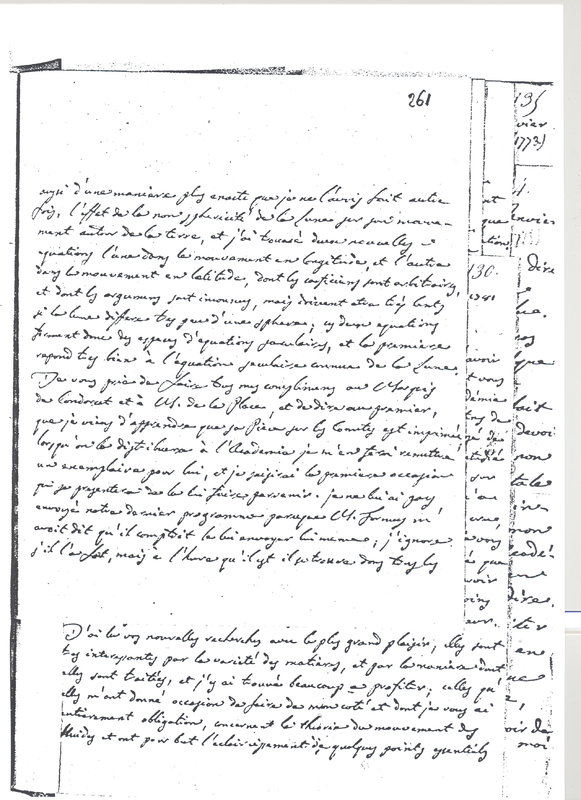 261
aussi d'une manière plus exacte que je ne l'avois fait autre
fois, l'effet de la non sphéricité de la Lune sur son mouve-
ment autour de la terre, et j'ai trouvé deux nouvelles
equations l'une dans le mouvement en longitude, et l'autre
dans le mouvement en latitude, dont les coeficiens sont arbitraires,
et dont les argumens sont inconnus, mais doivent etre tres lents
si la lune differe tres peu d'une sphere; ces deux equations
forment donc des especes d'equations seculaires, et la premiere
repond tres bien a l'equation seculaire connue de la Lune.
Je vous prie de faire tous mes complimens au Marquis
de Condorcet et à M. de la Place, et de dire au premier,
que je viens d'apprendre que sa Piece sur les Cometes est imprimée
lorsqu'on la distribuera à l'Academie je m'en ferai remettre
un exemplaire pour lui, et je saisirai la premiere occasion
qui se presentera de la lui faire parvenir. je ne lui ai pas
envoyé notre dernier programme parceque M. Formey m'
avoit dit qu'il comptoit le lui envoyer lui meme; j'ignore
s'il l'a fait, mais a l'heure qu'il est il se trouve dans tous les
J'ai lu vos nouvelles recherches avec le plus grand plaisir, elles sont
tres interessantes par la varieté des matieres, et par la maniere dont
elles sont traitées, et j'y ai trouvé beaucoup a profiter; celles qu'
elles m'ont donné occasion de faire de mon coté et dont je vous ai
entierement obligation, concernent la théorie du mouvement des
fluides et ont pour but l'eclaircissement de quelques points essentiels
195
vier
1773)
130.